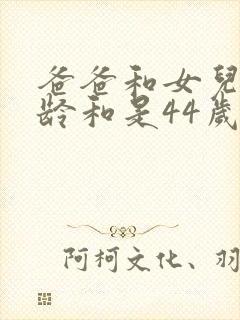 爸爸和女兒
龄和是44歲
阿柯文化、羽